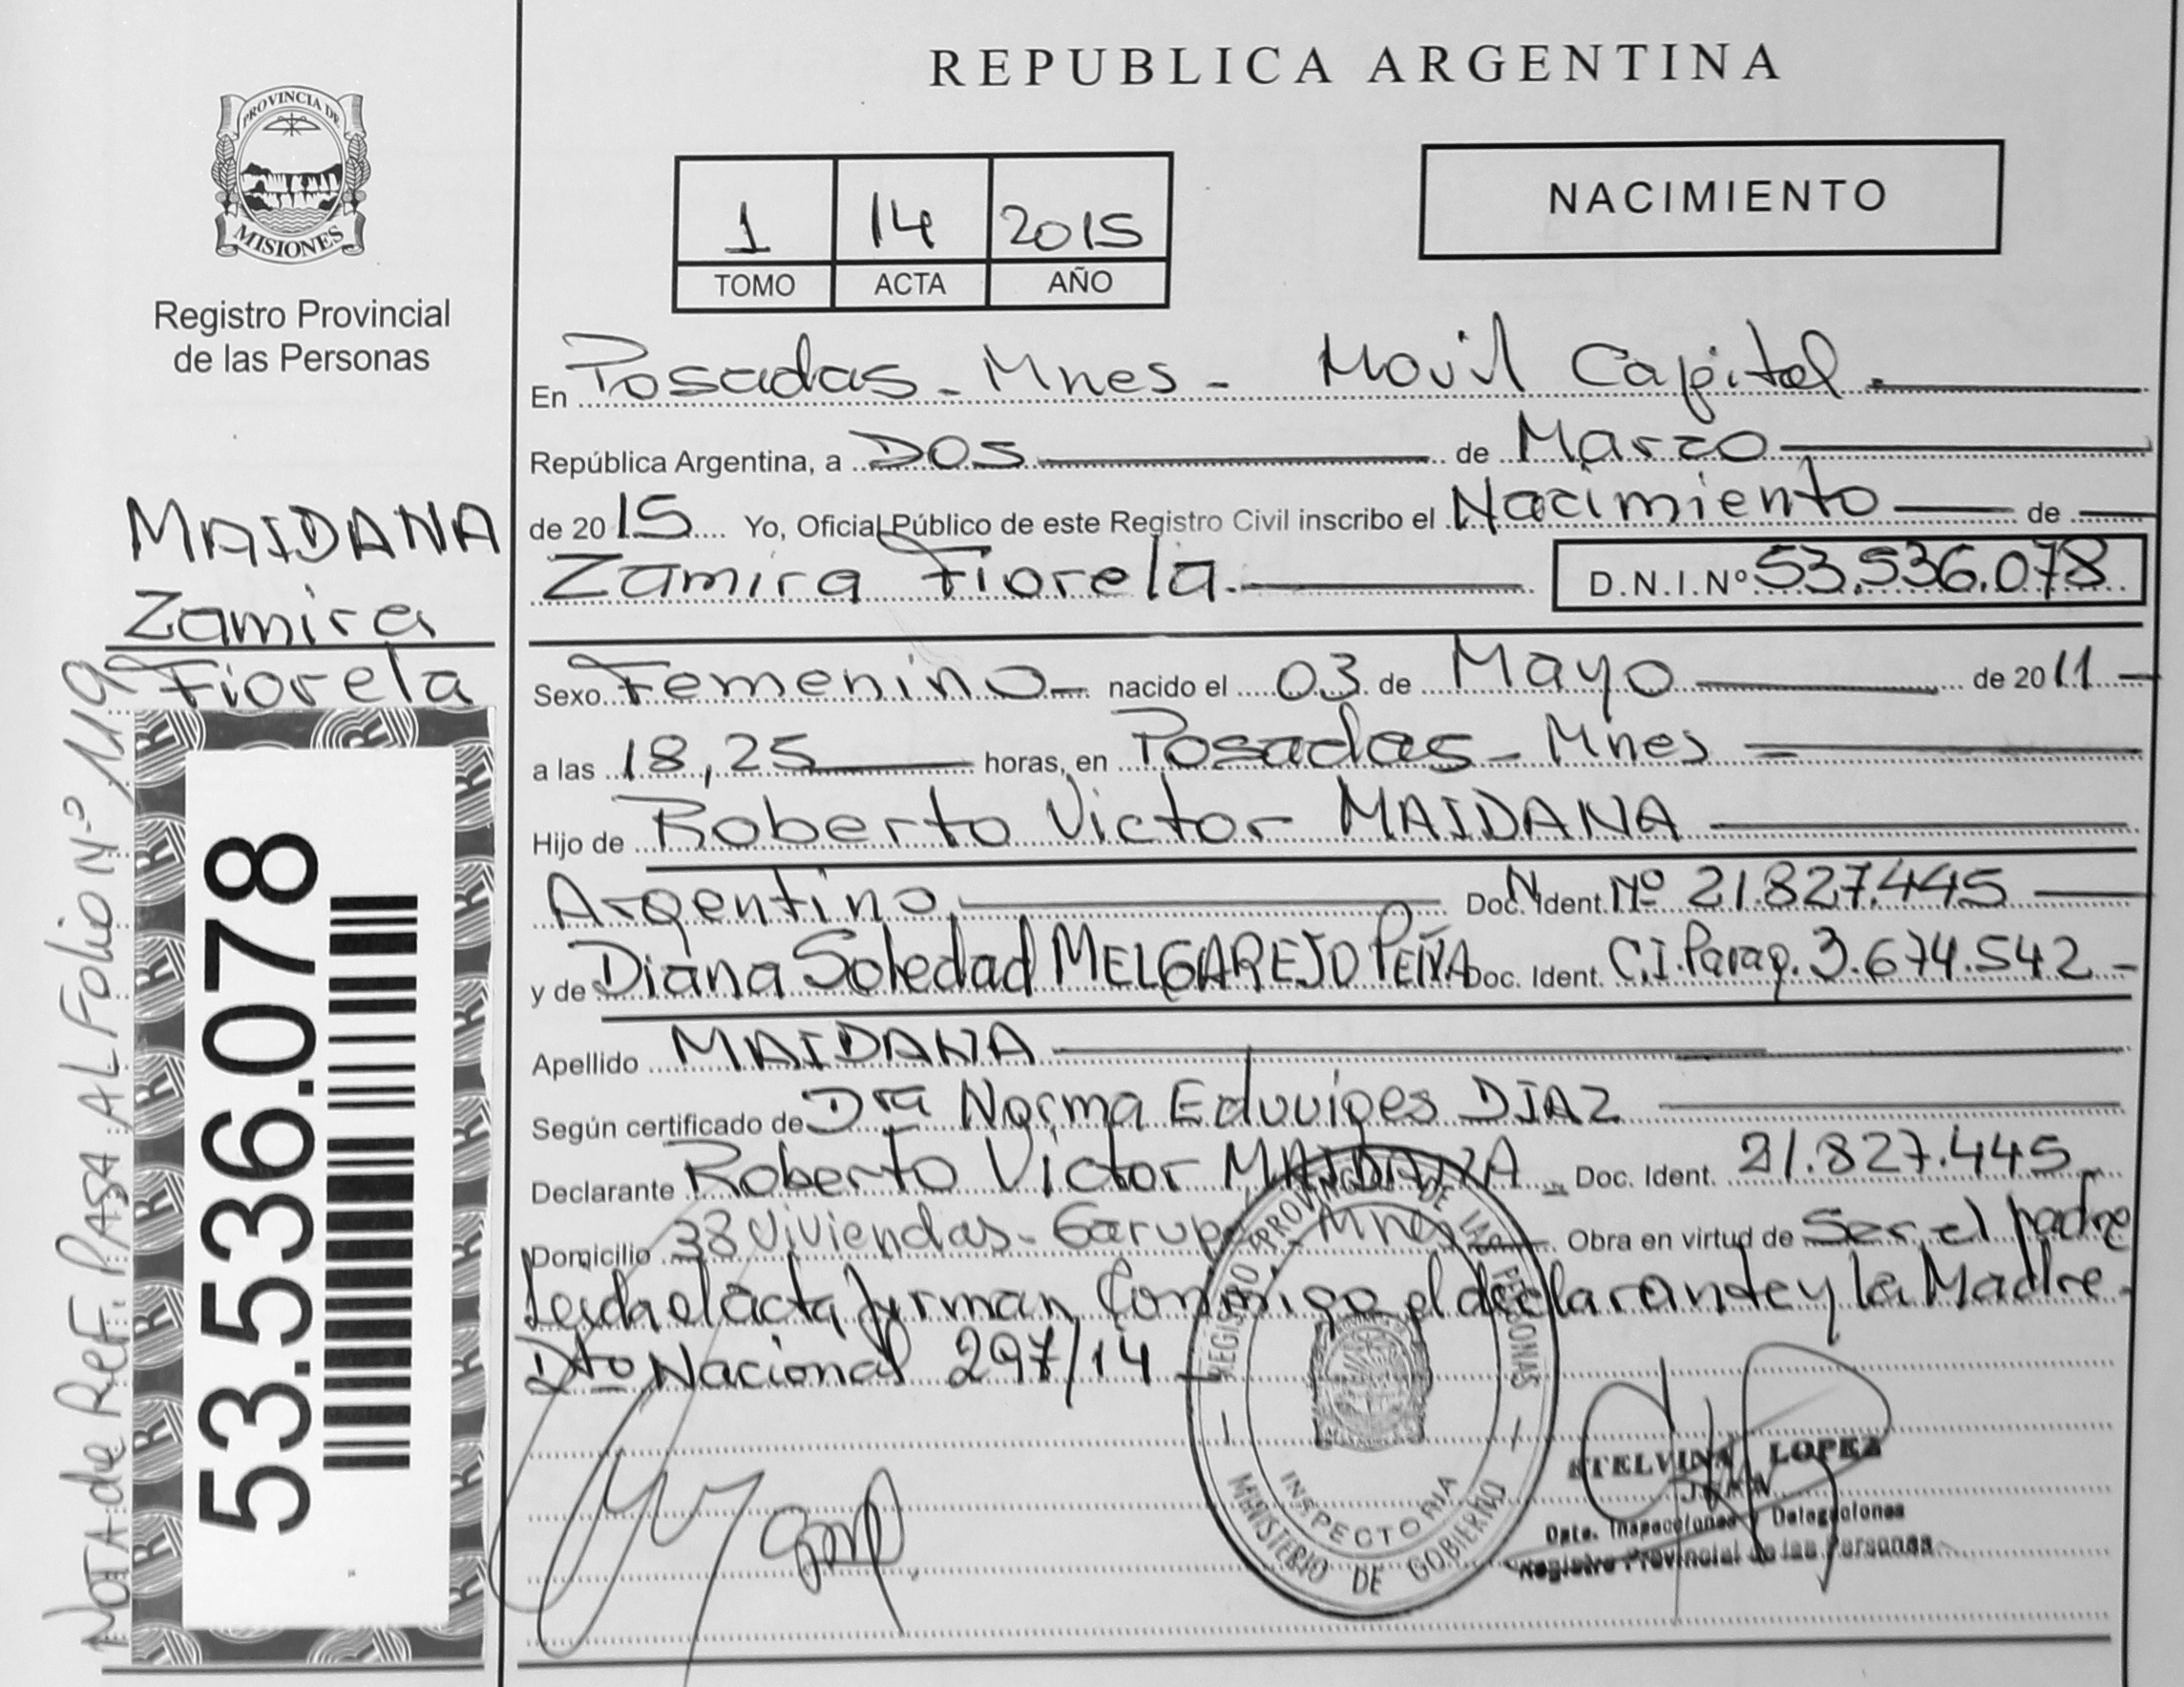 REPUBLICA ARGENTINA
PROVINCIA DE
MISIONES
Registro Provincial
de las Personas
NACIMIENTO
1 14 2015
TOMO ACTA AÑO
En Posadas - Mnes - Movil Capital.
República Argentina, a Dos de Marzo
de 2015 Yo, Oficial Público de este Registro Civil inscribo el Nacimiento de
Zamira Fiorela. D.N.I.Nº 53.536.078
MAIDANA
Zamira
Fiorela
Sexo Femenino nacido el 03 de Mayo de 2011
a las 18,25 horas, en Posadas - Mnes
Hijo de Roberto Victor MAIDANA
Argentino Doc. Ident. Nº 21.827.445
y de Diana Soledad MELGAREJO PEÑA Doc. Ident. C.I. Parag. 3.674.542
Apellido MAIDANA
Según certificado de Dra Norma Eduviges DIAZ
Declarante Roberto Victor MAIDANA Doc. Ident. 21.827.445
Domicilio 38 Viviendas - Garupa - Mnes Obra en virtud de Ser el padre
Leida el acta firman Conmigo el declarante y la Madre.
Dto Nacional 297/14
53.536.078
NOTA de Ref. PASA AL Folio Nº 119
REGISTRO PROVINCIAL DE LAS PERSONAS
INSPECTORIA
MINISTERIO DE GOBIERNO
ETELVINA LOPEZ
Dpto. Inspecciones y Delegaciones
Registro Provincial de las Personas